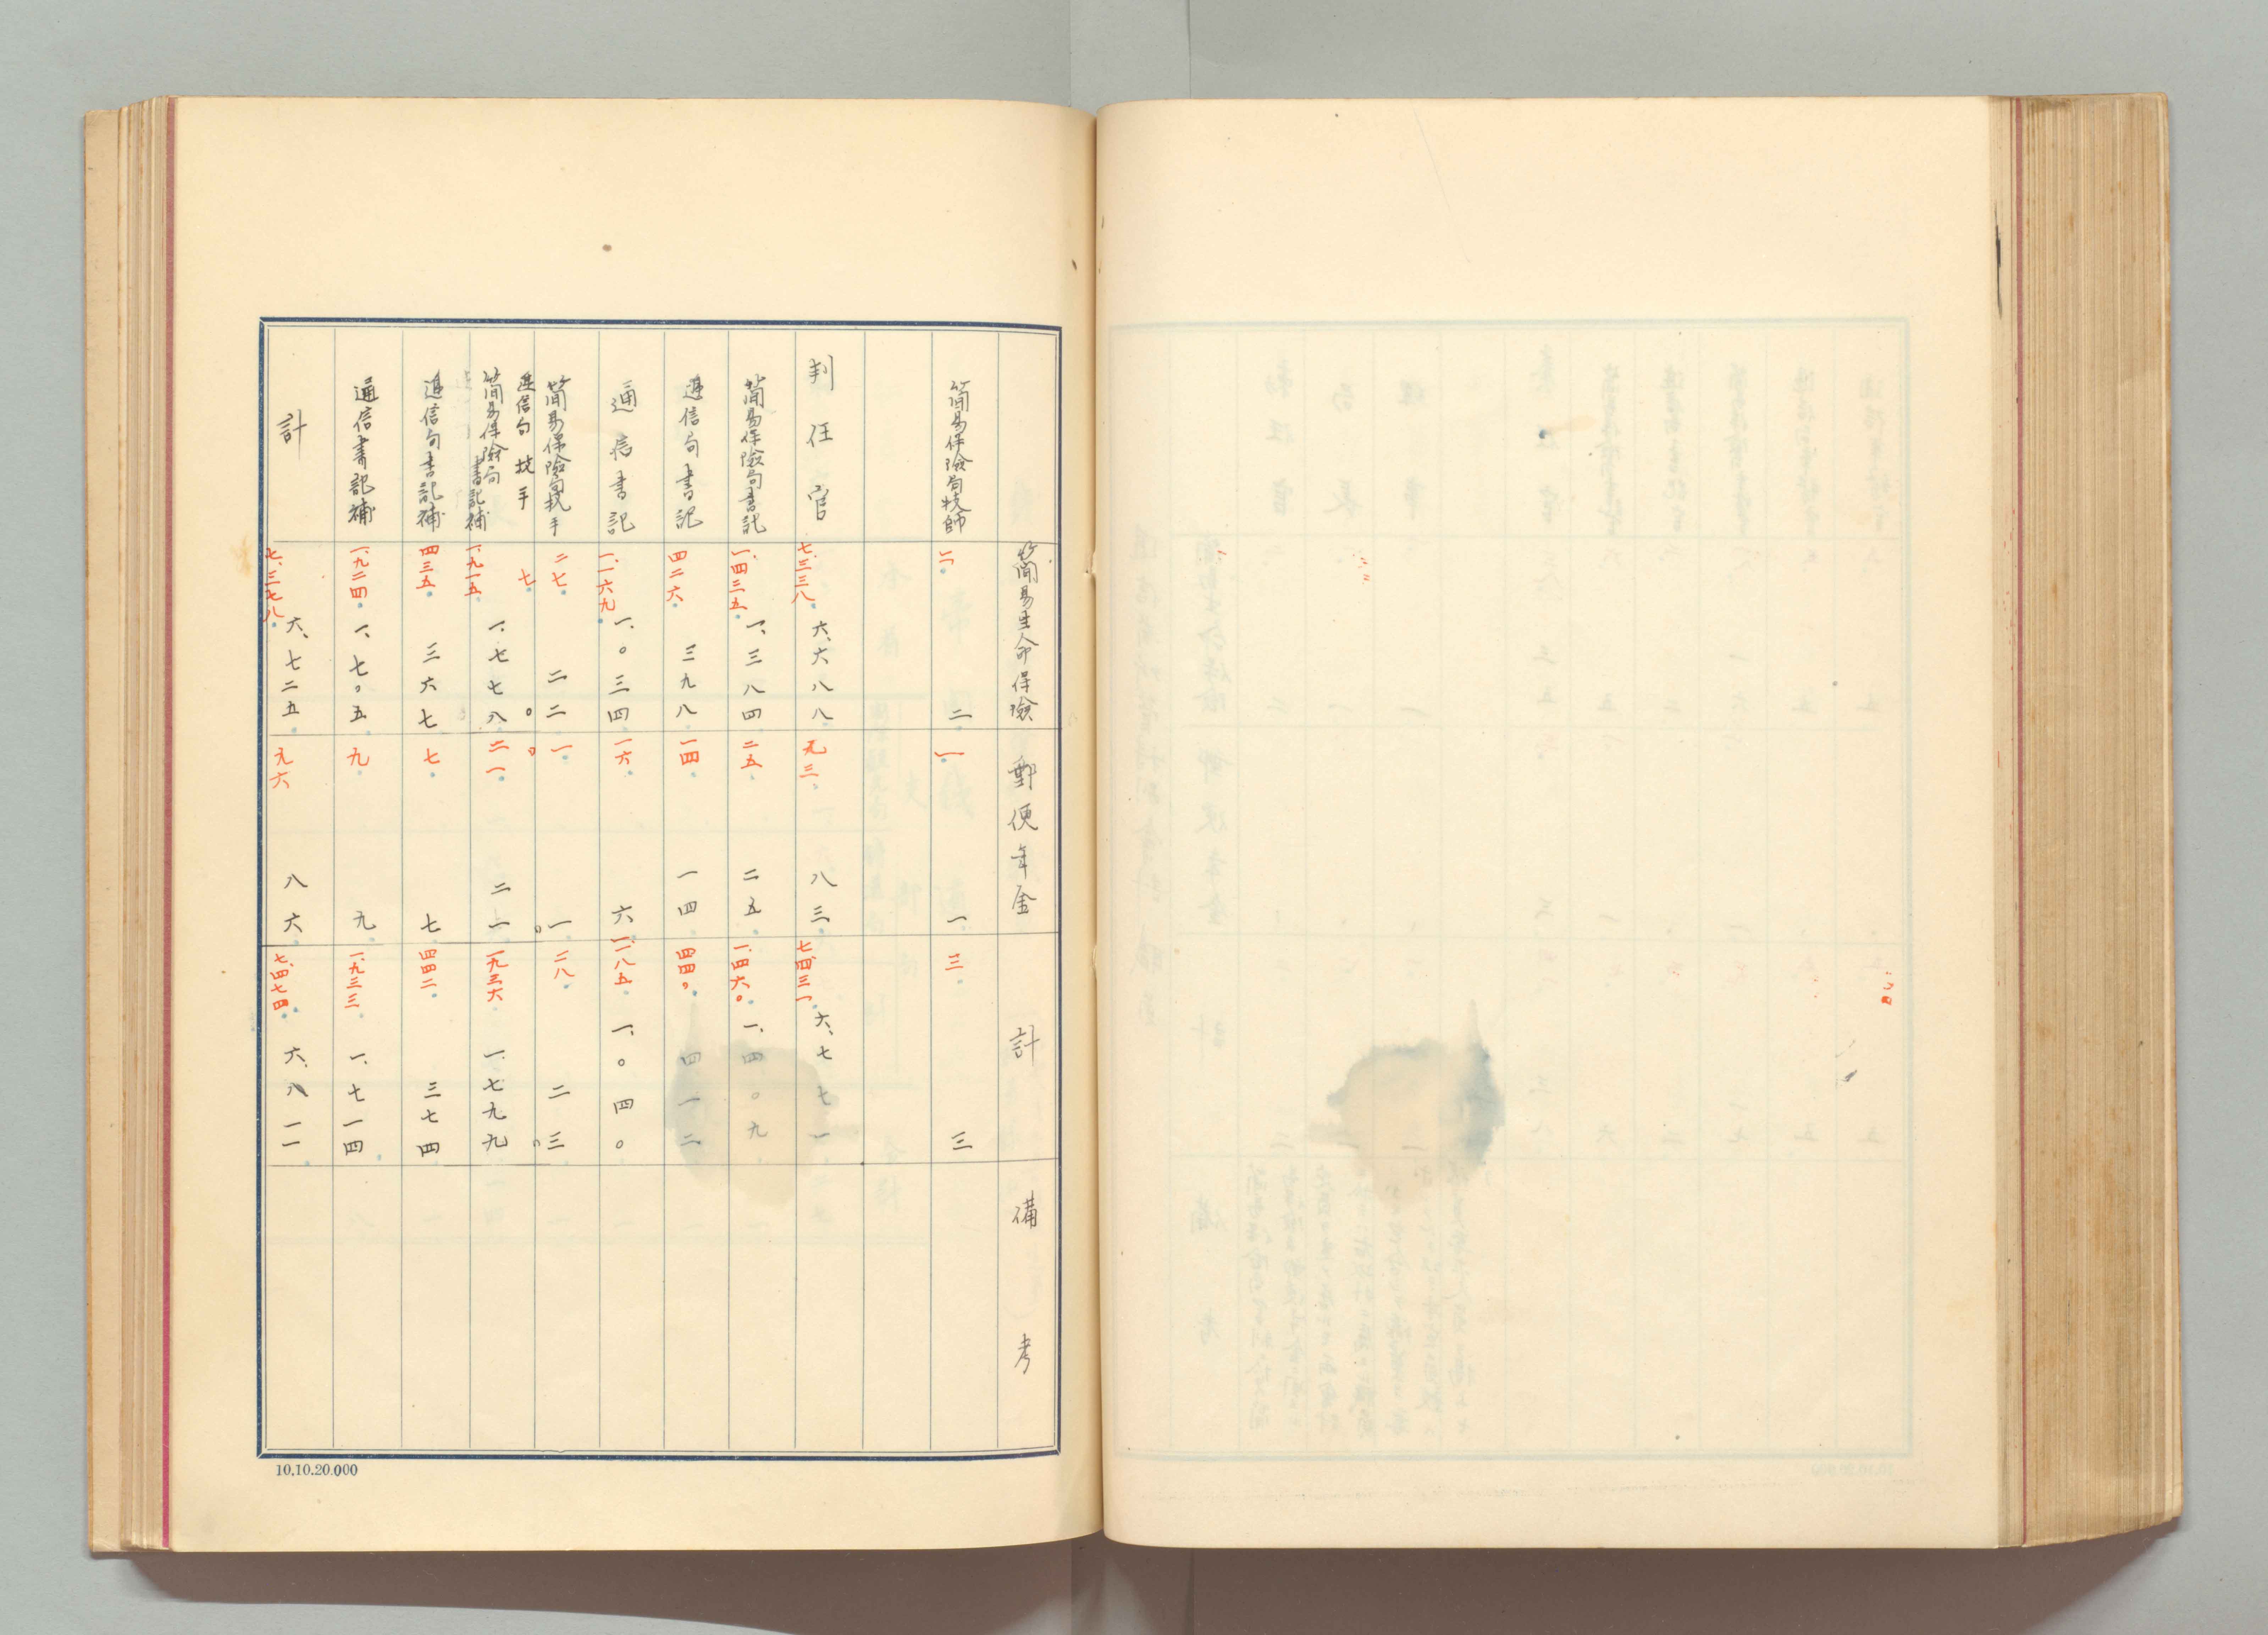 簡易生命保險 郵便年金 計 備考
簡易保險局技師 二 二 一 一 三 三
判任官 七、三三八 六、六八八 九三 八三 七、四三一 六、七七一
簡易保險局書記 一、四三五 一、三八四 二五 二五 一、四六〇 一、四〇九
遞信局書記 四二六 三九八 一四 一四 四四〇 四一二
通信書記 一、一六九 一、〇三四 一六 六 一、一八五 一、〇四〇
簡易保險局技手 二七 二二 一 一 二八 二三
遞信局技手 七 〇 〇 〇 〇
簡易保險局書記補 一、九一五 一、七七八 二一 二一 一、九三六 一、七九九
遞信局書記補 四三五 三六七 七 七 四四二 三七四
通信書記補 一、九二四 一、七〇五 九 九 一、九三三 一、七一四
計 七、三七八 六、七二五 九六 八六 七、四七四 六、八一一
10.10.20.000